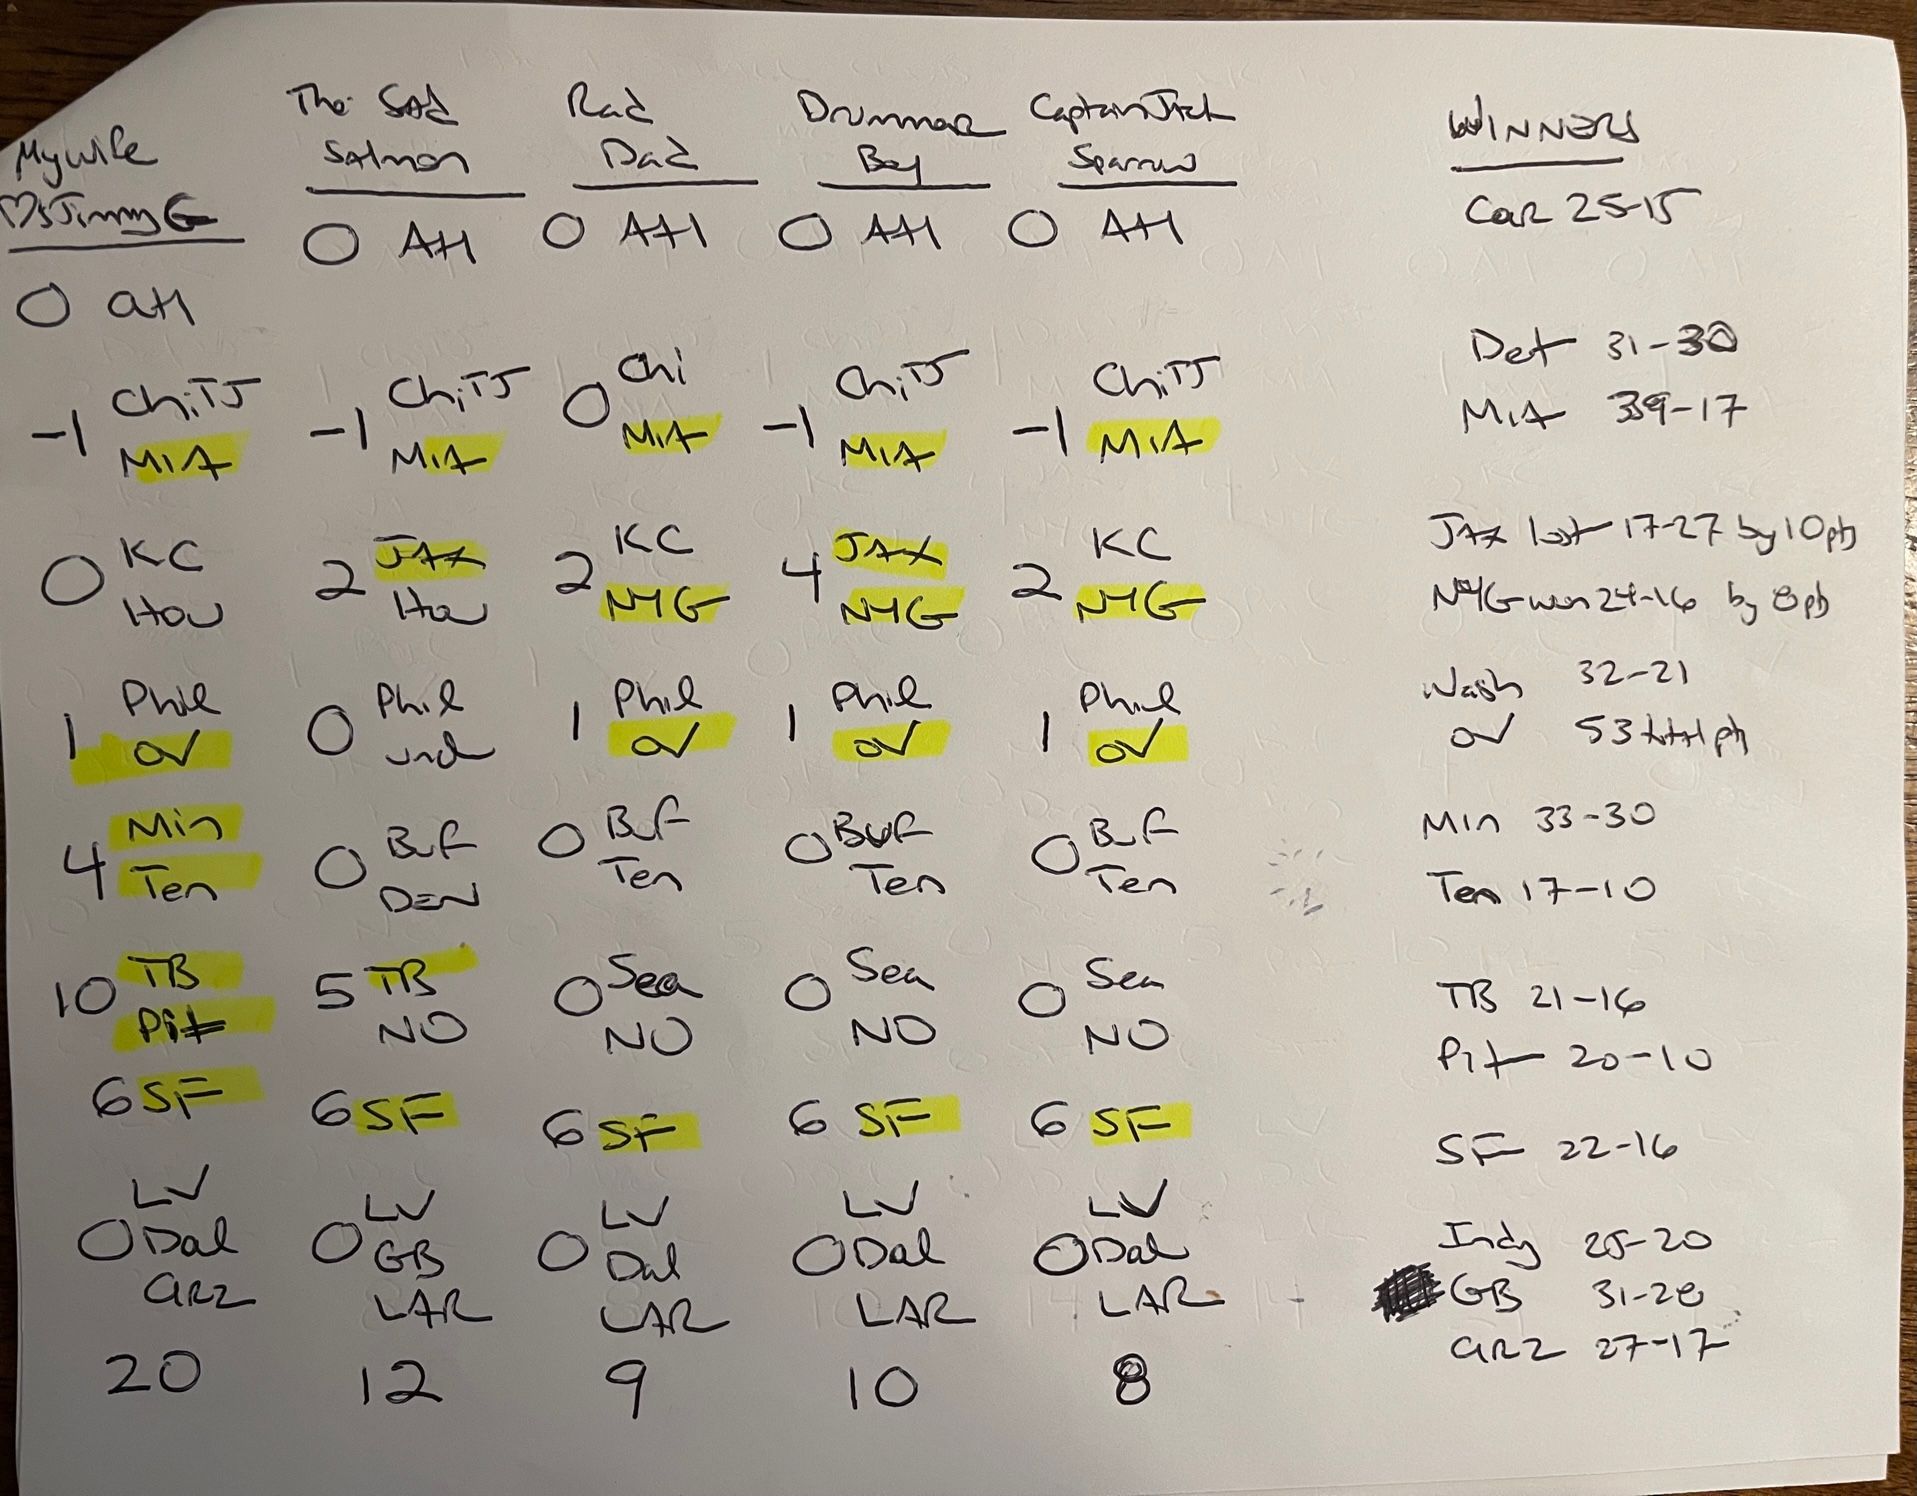 My wife
♡s Jimmy G
0 atl
-1 Chi TJ
MIA
0 KC
Hou
1 Phil
OV
4 Min
Ten
10 TB
Pit
6 SF
LV
0 Dal
arz
20
The Sad
Salmon
0 Atl
-1 Chi TJ
MIA
2 JAX
Hou
0 Phil
und
0 Buf
DEN
5 TB
NO
6 SF
LV
0 GB
LAR
12
Rad
Dad
0 Atl
0 Chi
MIA
2 KC
NYG
1 Phil
OV
0 Buf
Ten
0 Sea
NO
6 SF
LV
0 Dal
LAR
9
Drummer
Boy
0 Atl
-1 Chi TJ
MIA
4 JAX
NYG
1 Phil
OV
0 Buf
Ten
0 Sea
NO
6 SF
LV
0 Dal
LAR
10
Captain Jack
Sparrow
0 Atl
-1 Chi TJ
MIA
2 KC
NYG
1 Phil
OV
0 Buf
Ten
0 Sea
NO
6 SF
LV
0 Dal
LAR
8
WINNERS
Car 25-15
Det 31-30
MIA 39-17
JAX lost 17-27 by 10 pts
NYG won 24-16 by 8 pts
Wash 32-21
OV 53 total pts
Min 33-30
Ten 17-10
TB 21-16
Pit 20-10
SF 22-16
Indy 25-20
GB 31-28
arz 27-17